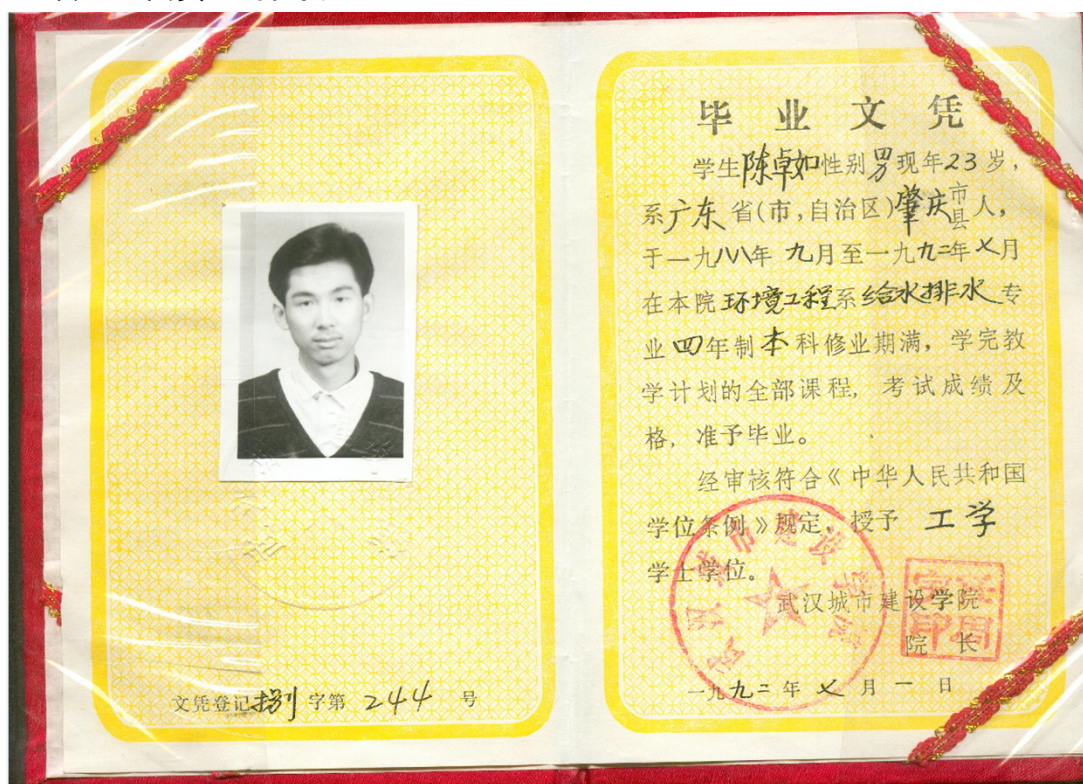 毕业文凭
学生陈卓如性别男现年23岁，
系广东省(市,自治区)肇庆市县人，
于一九八八年九月至一九九二年七月
在本院环境工程系给水排水专
业四年制本科修业期满，学完教
学计划的全部课程，考试成绩及
格，准予毕业。
经审核符合《中华人民共和国
学位条例》规定，授予工学
学士学位。
武汉城市建设学院
院长
一九九二年七月一日
武汉城市建设学院
文凭登记捌字第244号